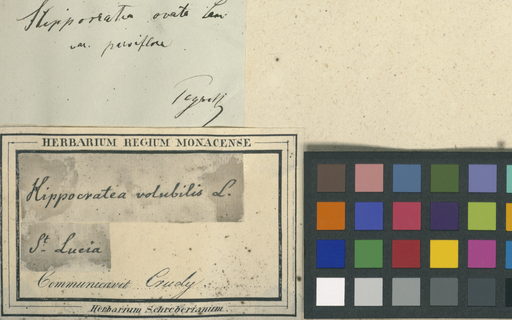 Hippocratea ovata Lam
var. parviflora
HERBARIUM REGIUM MONACENSE
Hippocratea volubilis L.
St. Lucia
Communicavit Crudy.
Herbarium Schreberianum.